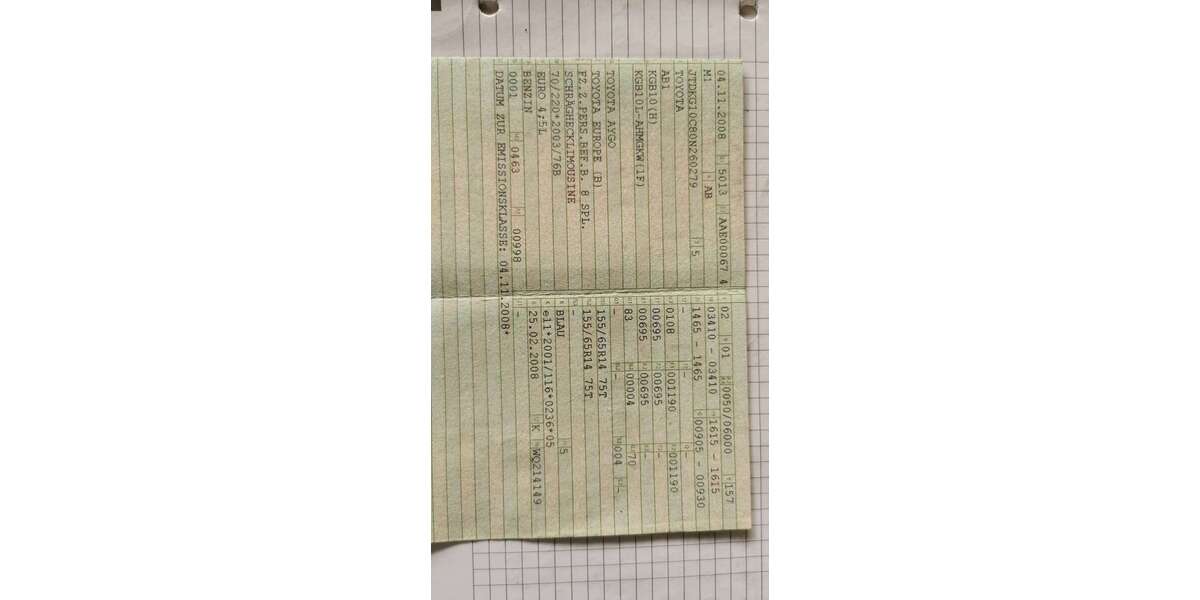 04.11.2008 5013 AAE00067 4
M1 AB
JTDKG10C80N260279 5
TOYOTA
AB1
KGB10(H)
KGB10L-AHMGKW(1F)
TOYOTA AYGO
TOYOTA EUROPE (B)
FZ.Z.PERS.BEF.B. 8 SPL.
SCHRÄGHECKLIMOUSINE
70/220*2003/76B
EURO 4;5L
BENZIN
0001 0463 00998
DATUM ZUR EMISSIONSKLASSE: 04.11.2008*
02 01 0050/06000 157
03410 - 03410 1615 - 1615
1465 - 1465 00905 - 00930
- - -
0108 001190 001190
00695 00695 -
00695 00695 -
83 00004 70
- - 004 -
155/65R14 75T
155/65R14 75T
-
BLAU 5
e11*2001/116*0236*05
25.02.2008 K WQ214149
-